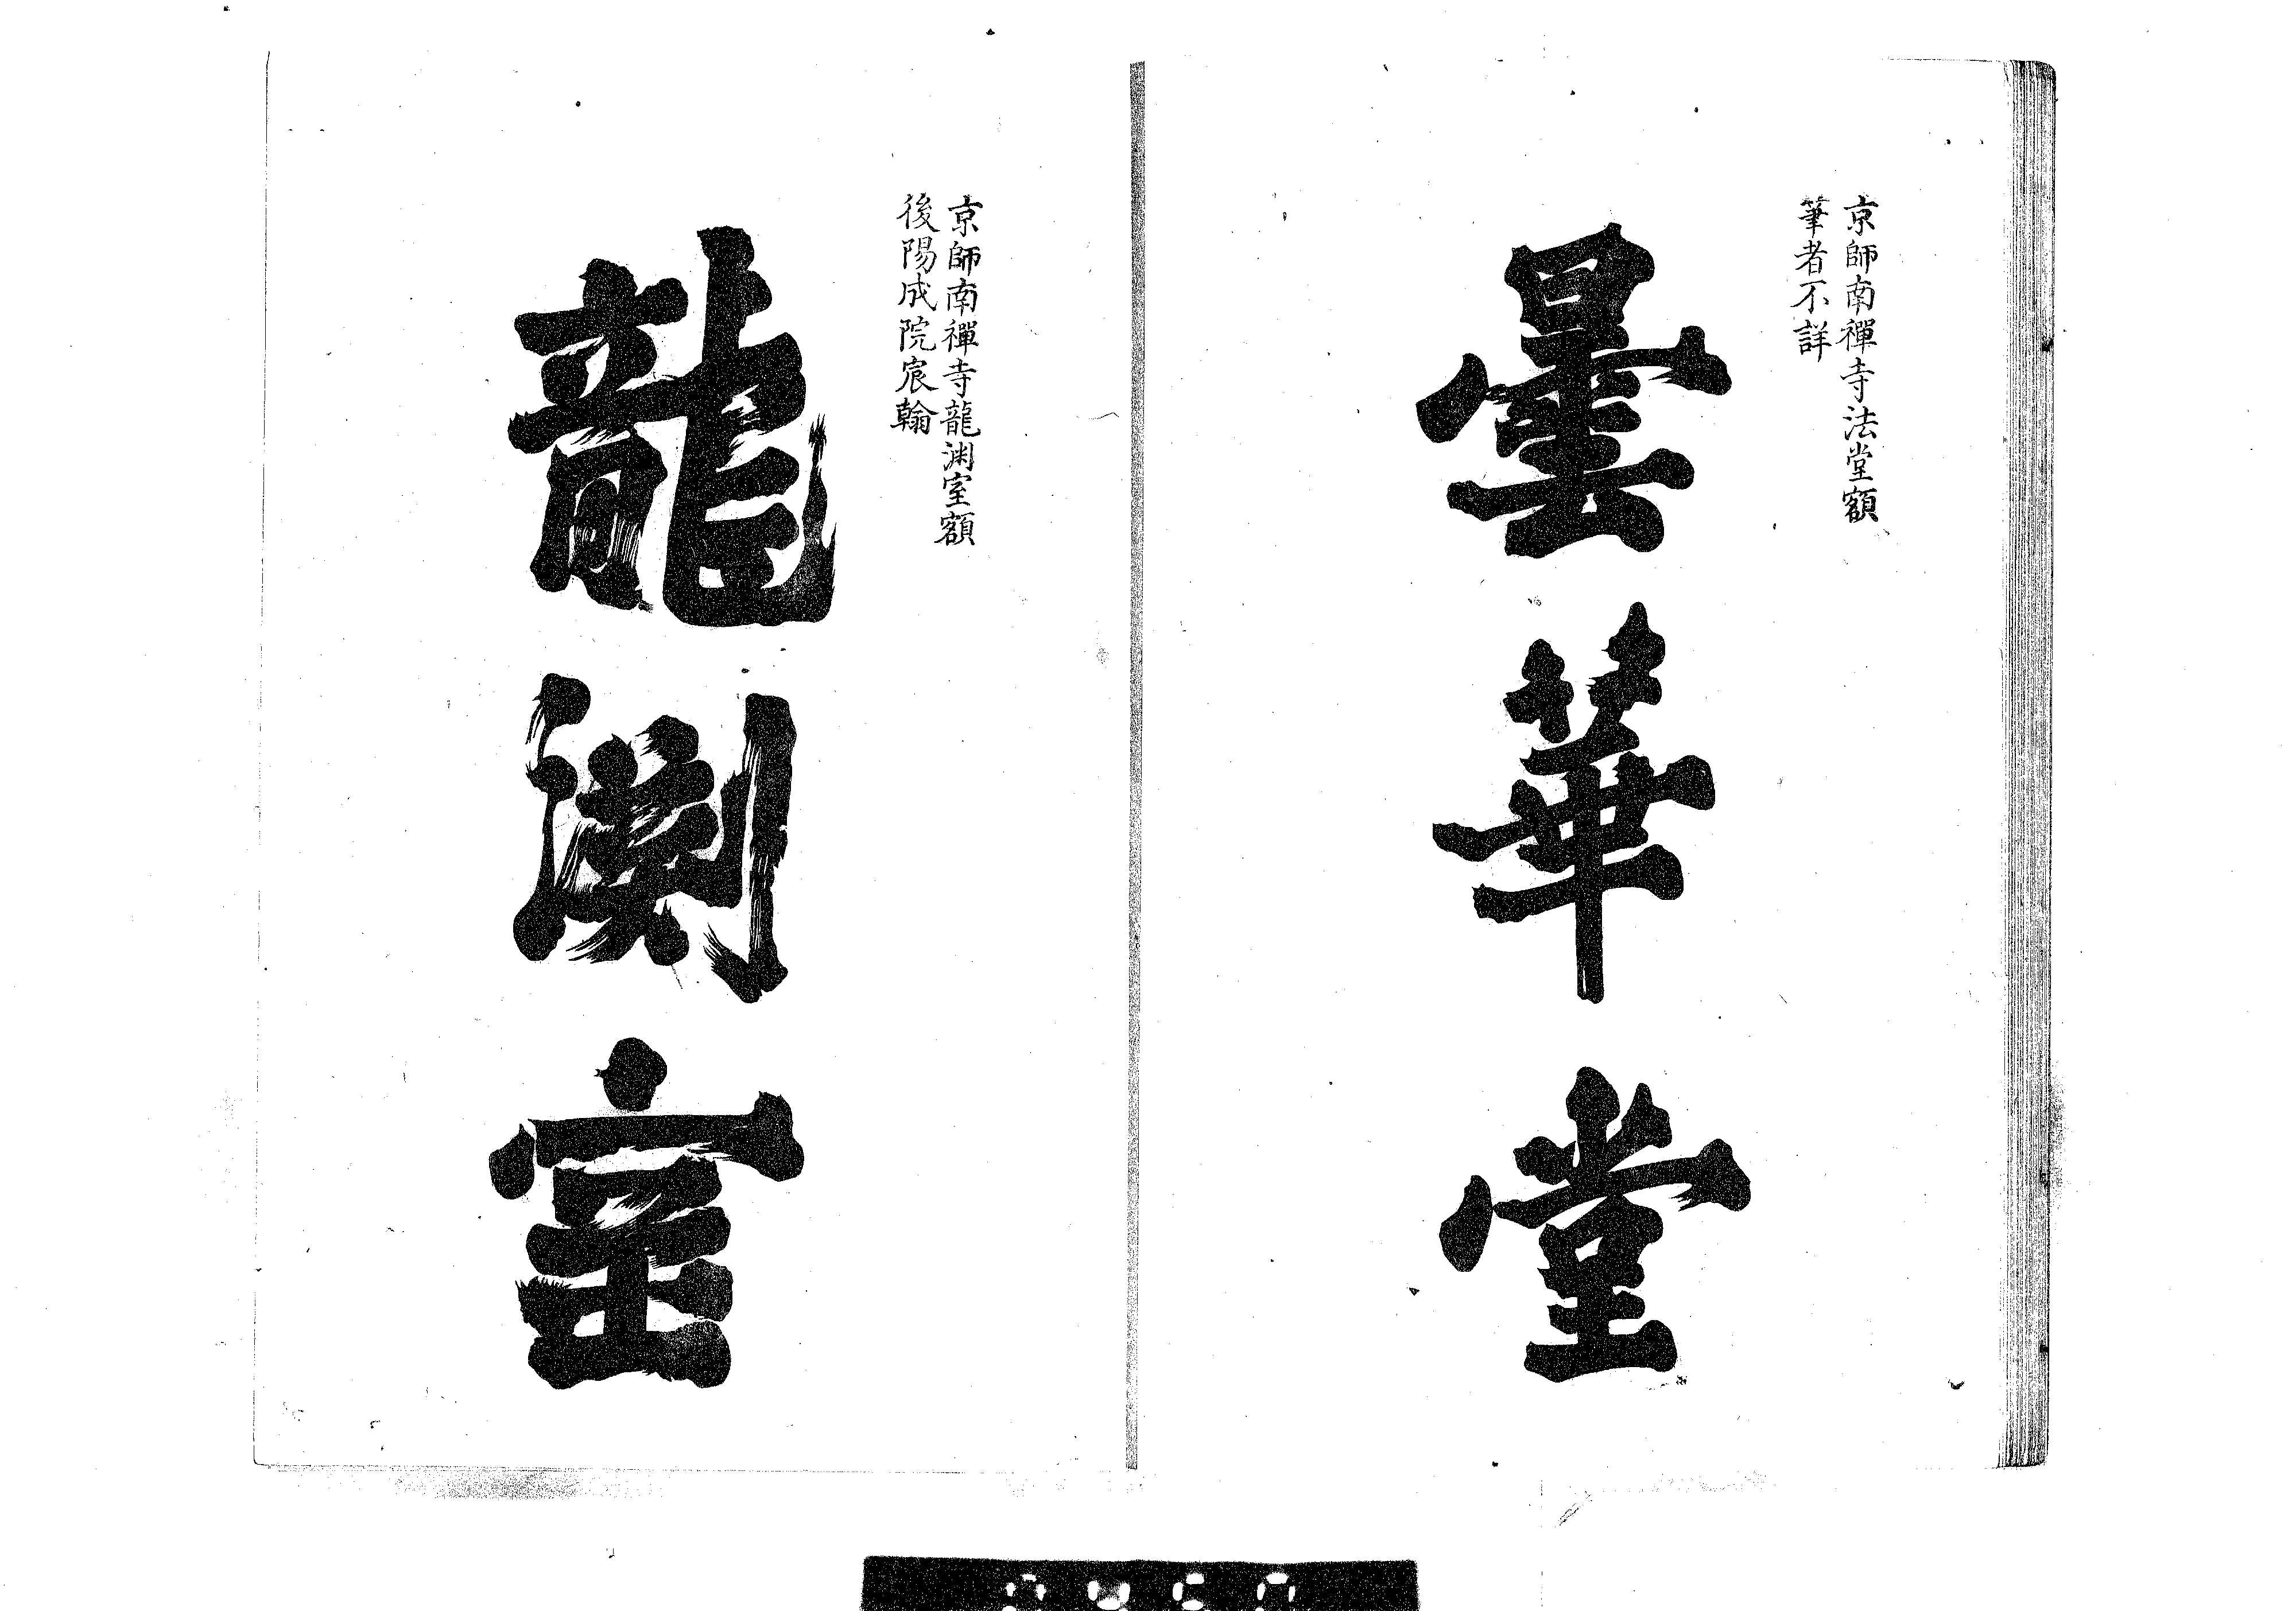 京師南禪寺法堂額
筆者不詳
曇華堂
京師南禪寺龍渊室額
後陽成院宸翰
龍渕室